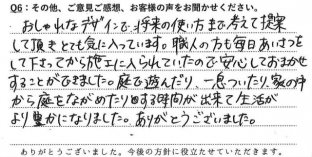 Q6：その他、ご意見ご感想、お客様の声をお聞かせください。
おしゃれなデザインで、将来の使い方まで考えて提案
して頂きとても気に入っています。職人の方も毎日あいさつを
して下さってから施工に入られていたので安心しておまかせ
することができました。庭で遊んだり、一息ついたり、家の中
から庭をながめたりする時間が出来て生活が
より豊かになりました。ありがとうございました。
ありがとうございました。今後の方針に役立たせていただきます。